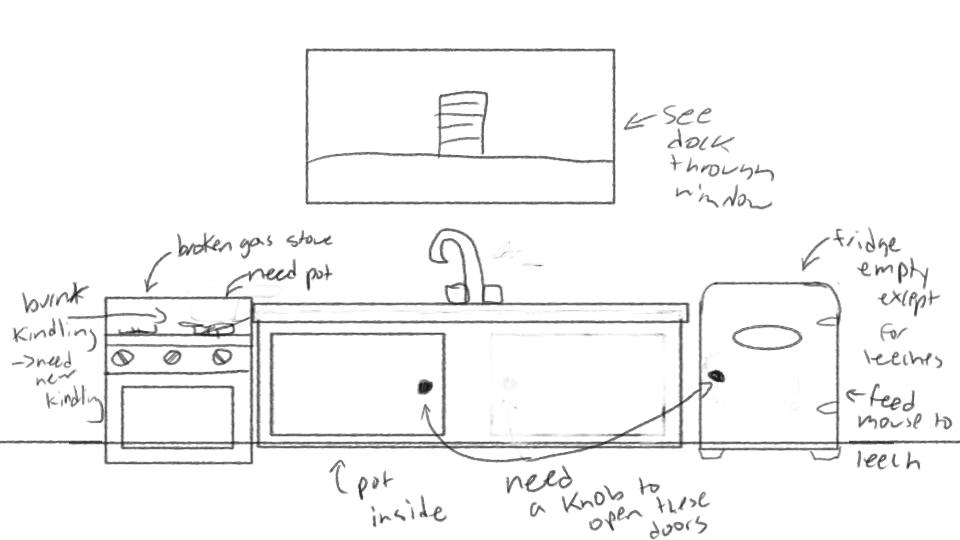 see
dock
through
window
broken gas stove
need pot
burnt
kindling
→need
new
kindling
fridge
empty
except
for
leeches
feed
mouse to
leech
pot
inside
need
a knob to
open these
doors